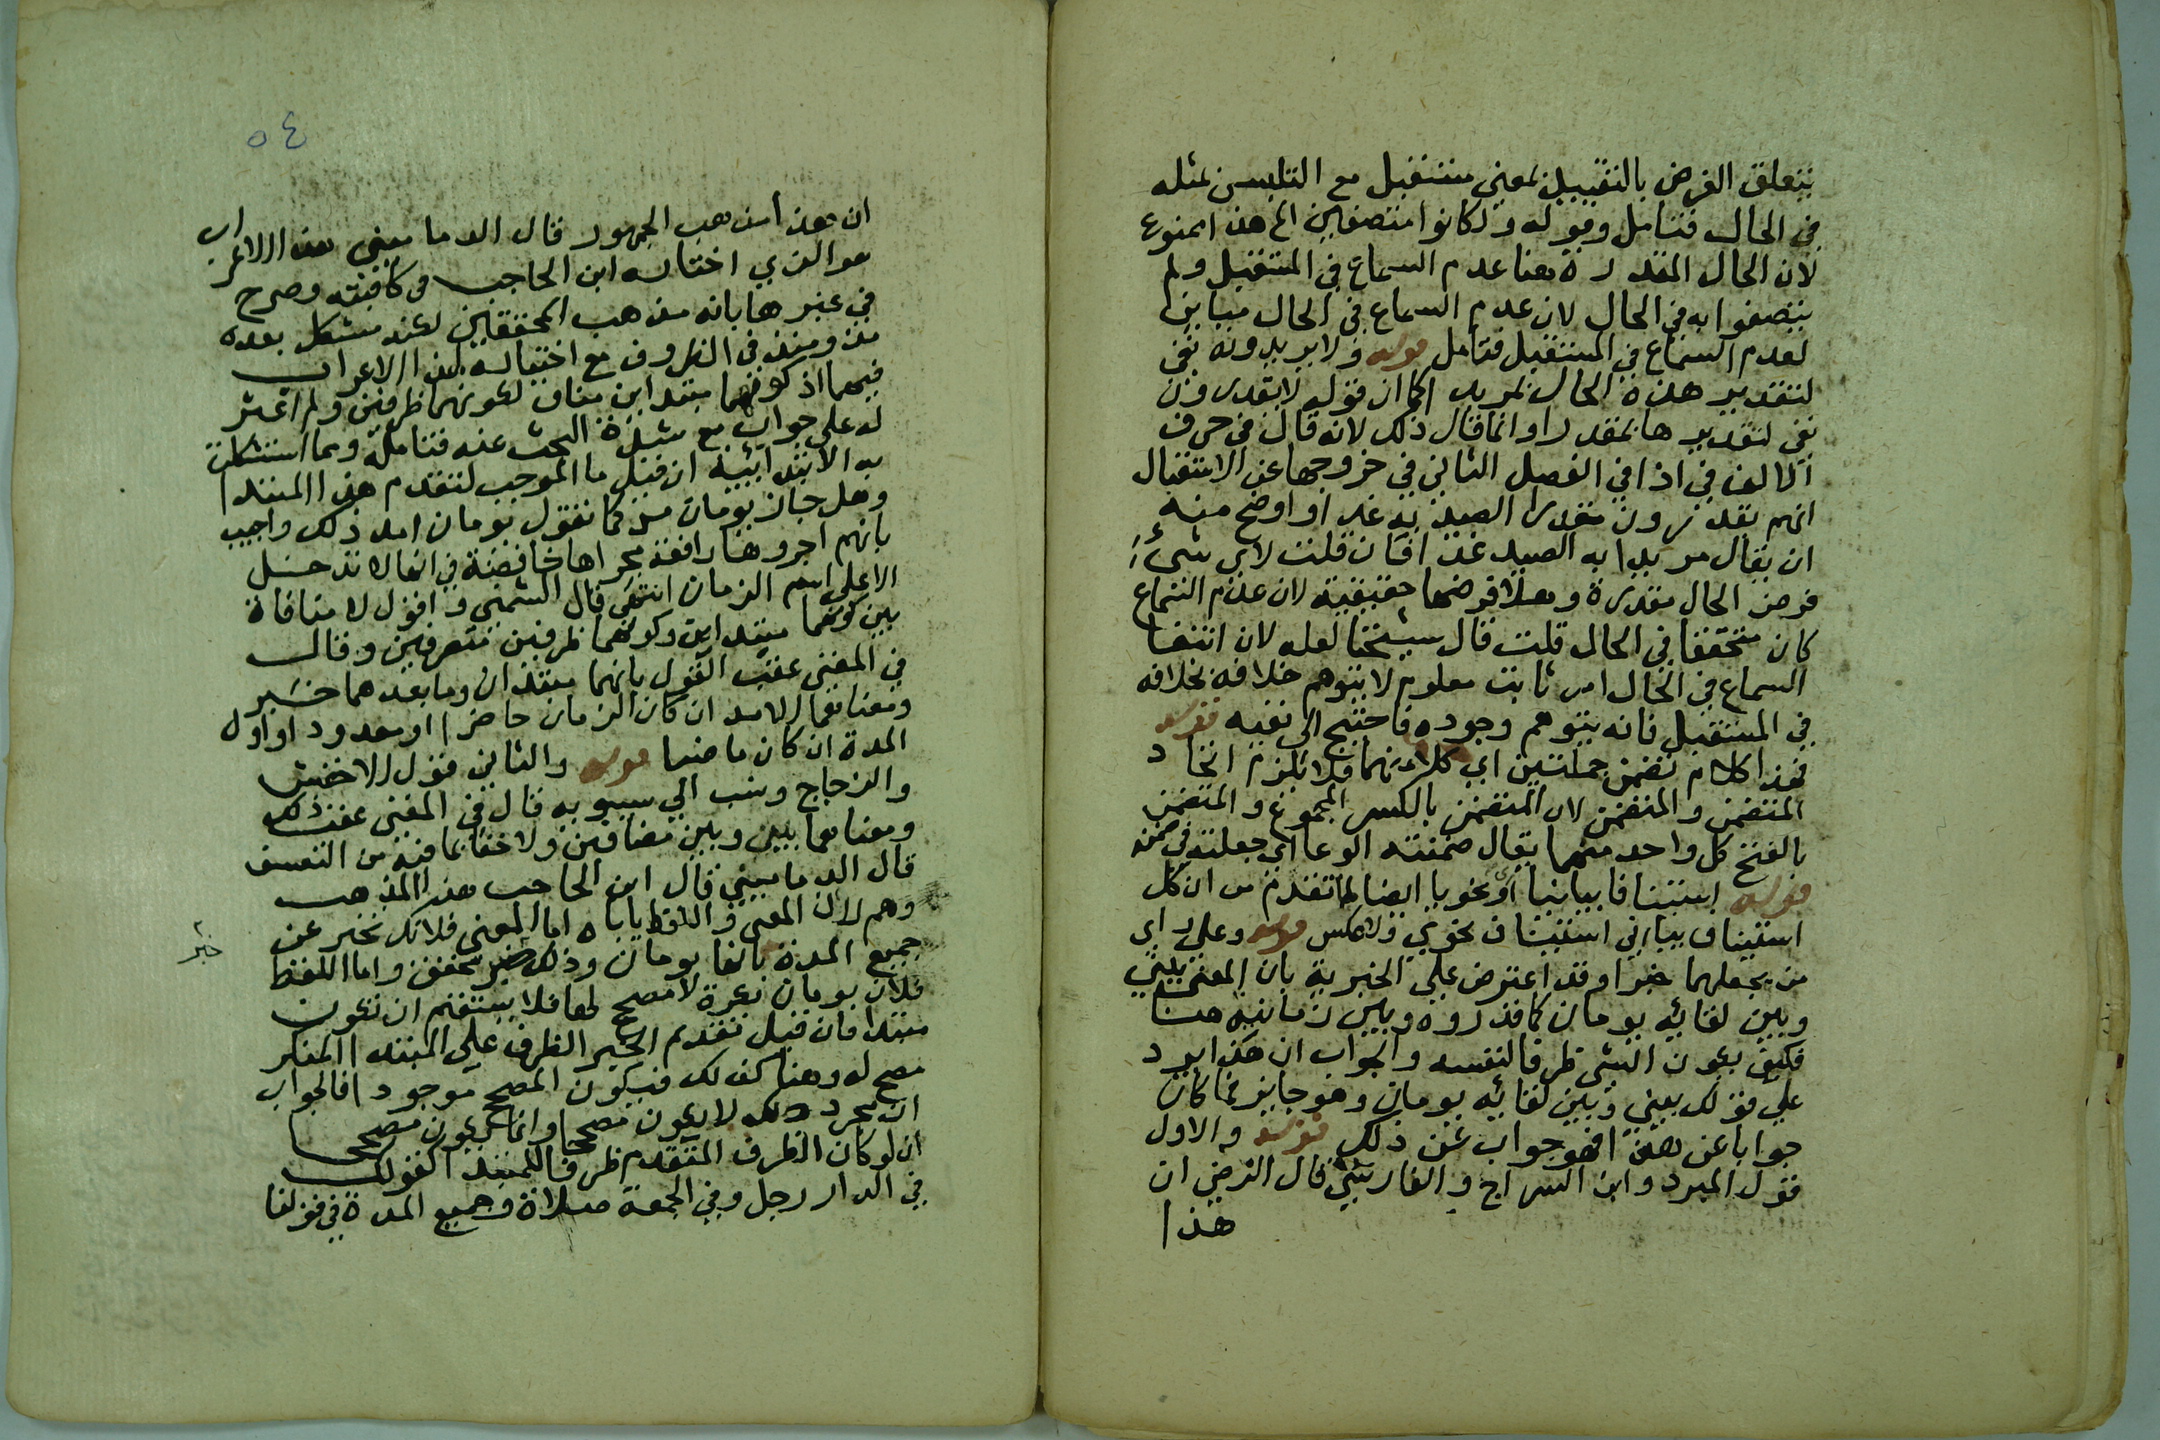 يتعلق الغرض بالتقييد بمعنى مستقبل مع التلبس بمثله
في الحال فتامل وقوله ولكانوا متصفين الخ هذا ممنوع
لان الحال المقدرة هنا عدم السماع في المستقبل ولم
يتصفوا به في الحال لان عدم السماع في الحال مباين
لعدم السماع في المستقبل فتامل قوله ولا يريدونه نفي
لتقدير هذه الحال بمريدا كما ان قوله لا يقدرون
نفي لتقديرها بمقدرا وانما قال ذلك لانه قال في حرف
الالف في اذا في الفصل الثاني في خروجها عن الاستقبال
انهم يقدرون مقدرا الصيد به غدا واوضح منه
ان يقال مريدا به الصيد غدا فان قلت لاي شيء
فرض الحال مقدرة وهلا فرضها حقيقية لان عدم السماع
كان متحققا في الحال قلت قال شيخنا لعله لان انتفا
السماع في الحال امر ثابت معلوم لا يتوهم خلافه بخلافه
في المستقبل فانه يتوهم وجوده فاحتيج الى نفيه قوله
فهذا كلام تضمن جملتين اي كلاء منهما فلا يلزم اتحاد
المتضمن والمتضمن لان المتضمن بالكسر المجموع والمتضمن
بالفتح كل واحد منهما يقال ضمنته الوعا اي جعلته في ضمنه
قوله استئنافا بيانيا او نحويا ايضا لما تقدم من ان كل
استيناف بياني استيناف نحوي ولا عكس قوله وعلى راي
من يجعلهما خبرا وقد اعترض على الخبرية بان المعنى بيني
وبين لقائه يومان كما قدروه وبين زمانية هنا
فكيف يكون الشي ظرفا لنفسه والجواب ان هكذا يرد
على قولك بيني وبين لقائه يومان وهو جايز فما كان
جوابا عن هذا فهو جواب عن ذلك قوله والاول
قول المبرد وابن السراج والفارسي قال الرضي ان
هذا
٥٤
ان هذا مذهب الجمهور قال الدماميني هذا الاعراب
هو الذي اختاره ابن الحاجب في كافيته وصرح
في غيرها بانه مذهب المحققين لكنه مشكل بعده
مذ ومنذ في الظروف مع اختياره لهذا الاعراب
فيهما اذ كونهما مبتداين مناف لكونهما ظرفين ولم اعثر
له على جواب مع شدة البحث عنه فتامله ومما استشكلت
به الابتدائية ان قيل ما الموجب لتقدم هذا المبتدا
وهل جاز يومان مذ كما تقول يومان امد ذلك واجيب
بانهم اجروها رافعة مجراها خافضة في انها لا تدخل
الا على اسم الزمان انتهى قال الشمني واقول لا منافاة
بين كونهما مبتداين وكونهما ظرفين متصرفين وقال
في المغني عقب القول بانهما مبتدان وما بعدهما خبر
ومعناهما الامد ان كان الزمان حاضرا او معدودا واول
المدة ان كان ماضيا قوله والثاني قول الاخفش
والزجاج ونسب الي سيبويه قال في المغني عقب ذلك
ومعناهما بين وبين مضافين ولا خفا بما فيه من التعسف
قال الدماميني قال ابن الحاجب هذا المذهب
وهم لان المعنى واللفظ ياباه اما المعنى فلانك تخبر عن
جميع المدة بانها يومان وذلك خبر محقق واما اللفظ
خبر
فلان يومان نكرة لا مصحح لها فلا يستقيم ان تكون
مبتدا فان قيل تقدم الخبر الظرف على المبتدا المنكر
مصحح له وهنا كذلك فيكون المصحح موجودا فالجواب
ان مجرد ذلك لا يكون مصححا وانما يكون مصححا
ان لو كان الظرف المتقدم ظرفا للمبتدا كقولك
في الدار رجل وفي الجمعة صلاة وجميع المدة في قولنا